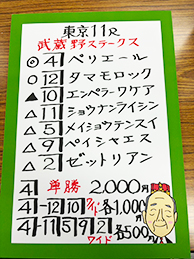 東京11R
武蔵野ステークス
◎4ペリエール
○12タマモロック
▲10エンペラーワケア
△11ショウナンライシン
△5メイショウテンスイ
△9ペイシャエス
△2ゼットリアン
4 単勝 2,000円
4-12 10 ワイド 各1,000円
4-11 5 9 2 ワイド 各500円